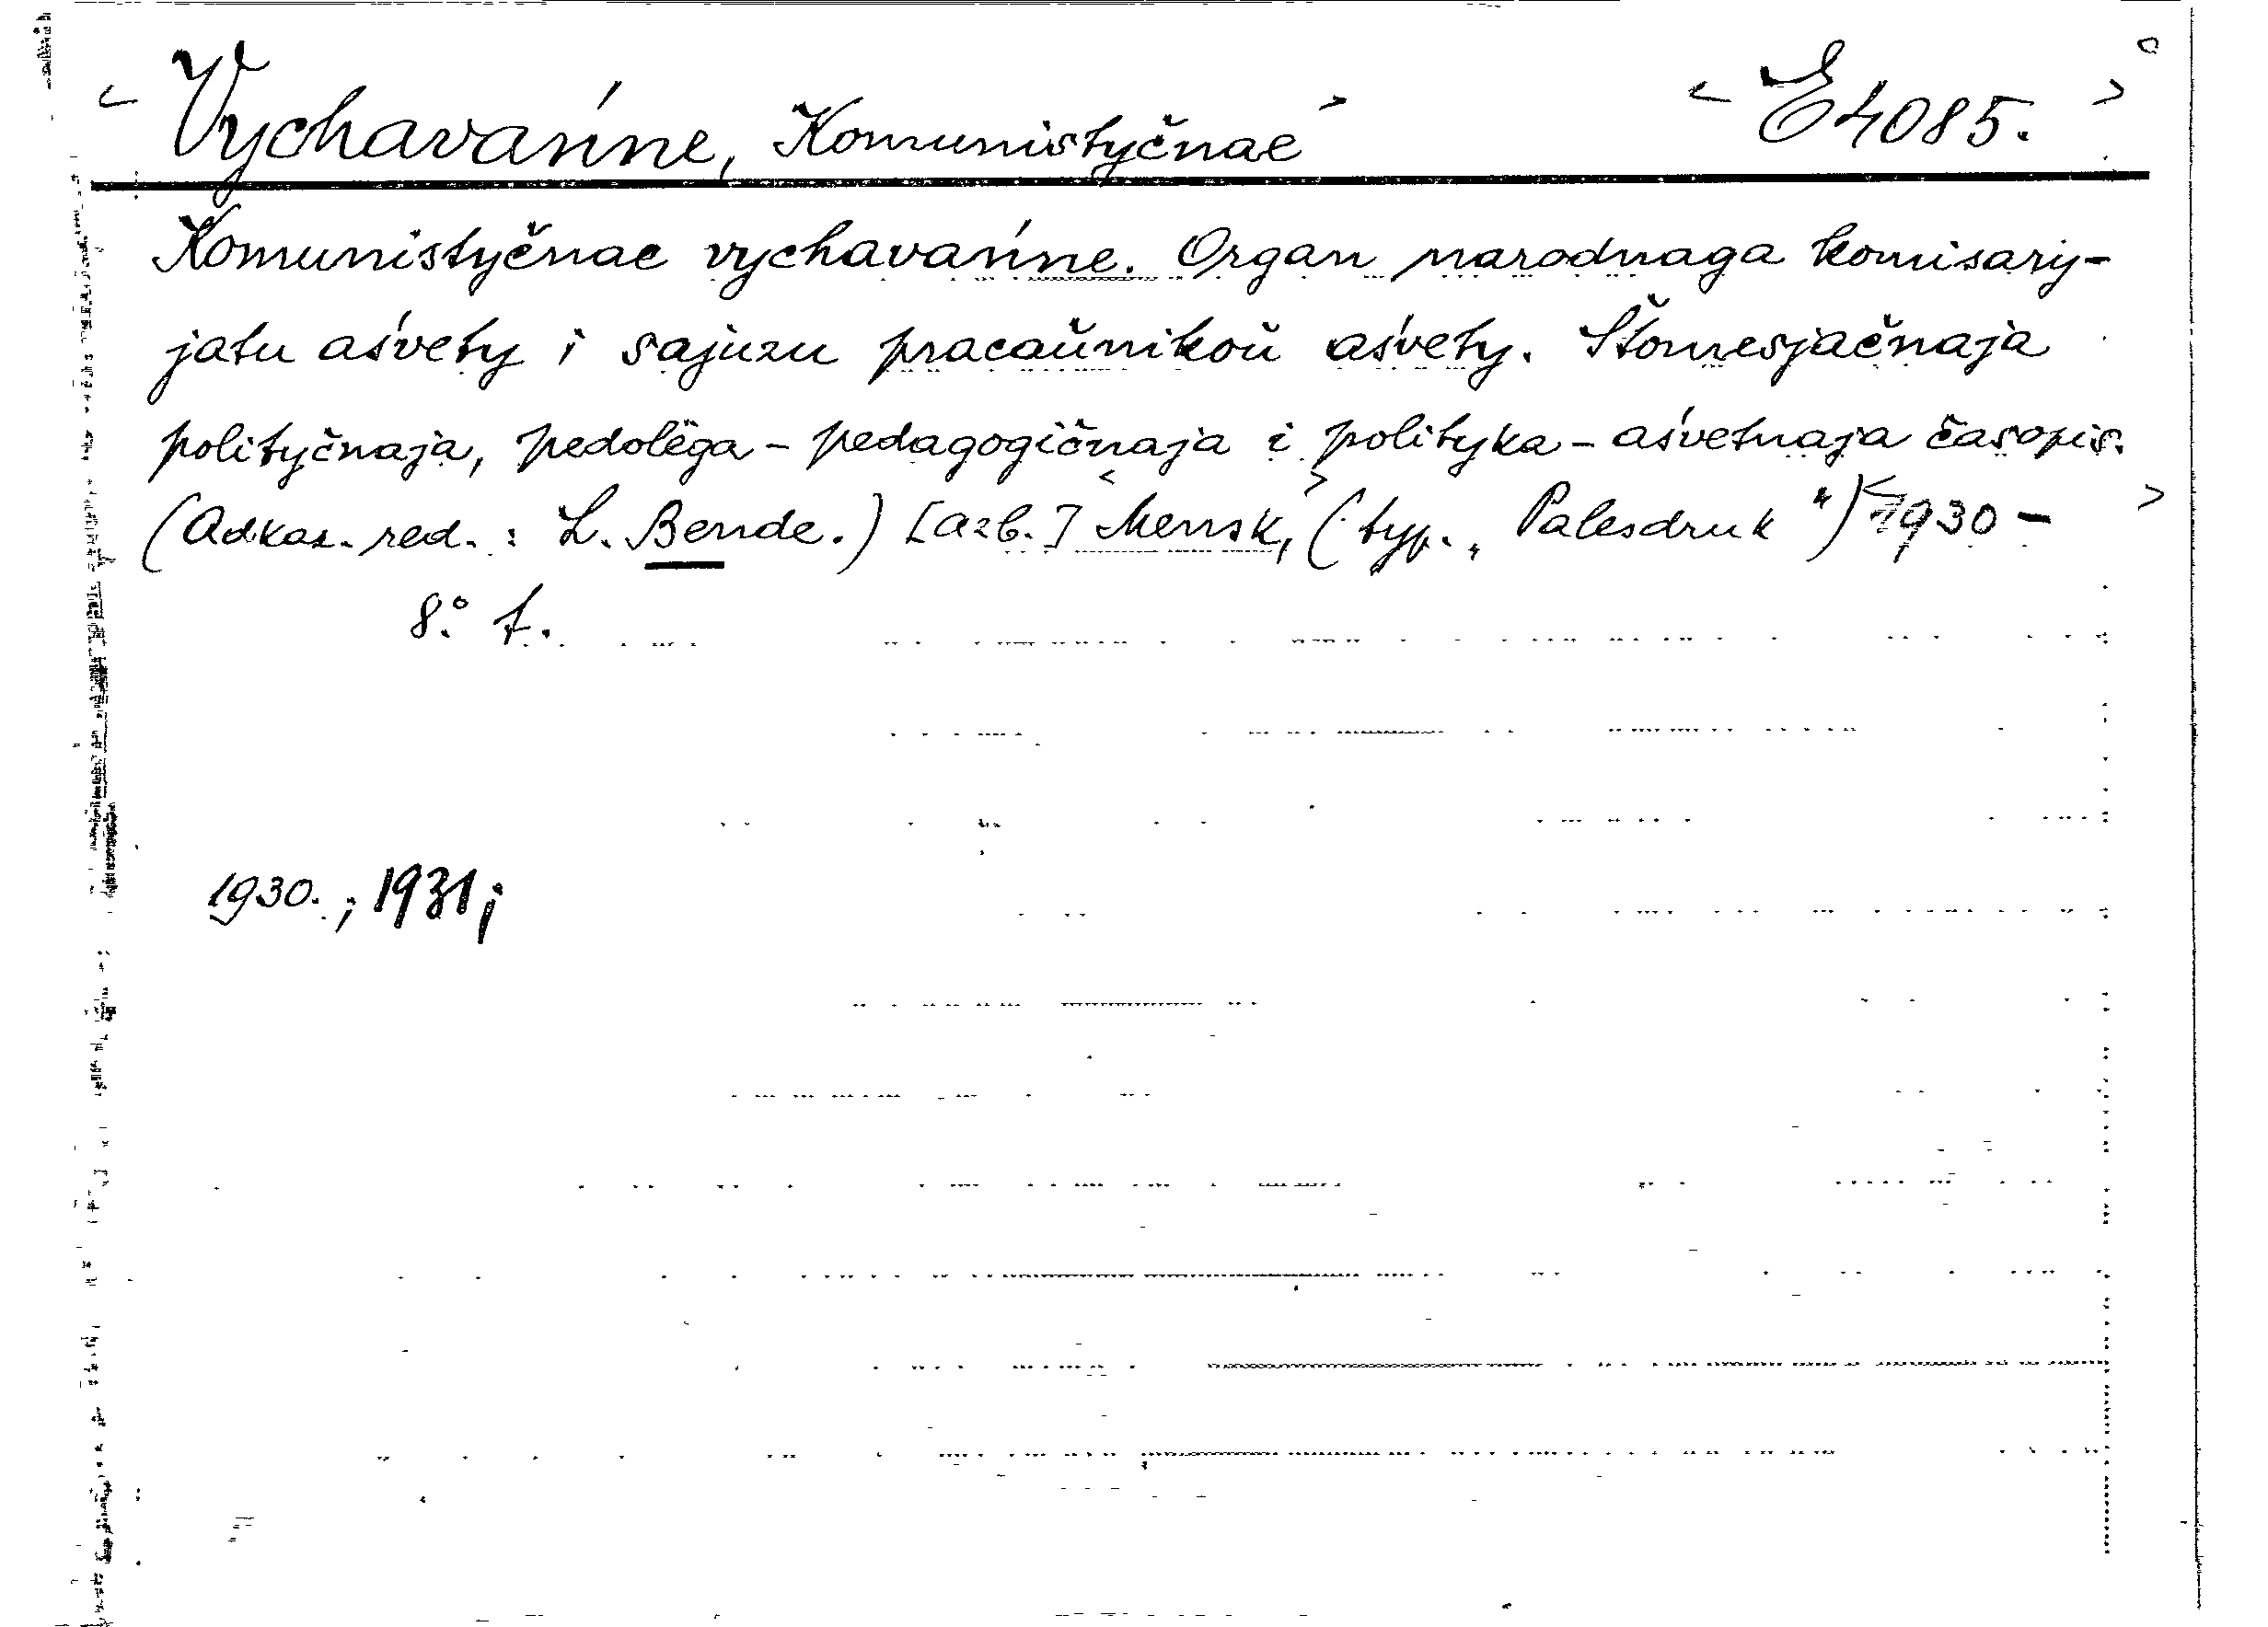 < Vychavańne, Komunistyčnae > < E 4085. >
Komunistyčnae vychavańne. Organ narodnaga komisary-
jatu aśvety i sajuzu pracaŭnikoŭ aśvety. Štomesjačnaja
polityčnaja, pedolëga-pedagogičnaja i polityka-aśvetnaja časopis.
(Adkaz. red.: L. Bende.) [azb.] <Mensk,> (typ. „Palesdruk") <1930 - >
8.° f.
1930.; 1931;